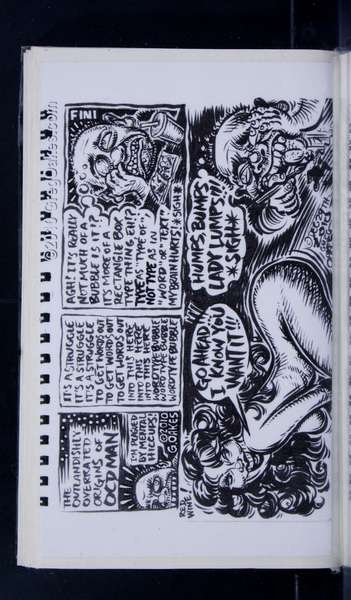 ©2010GregOakes.com
THE
OUTLANDISHLY
OVERRATED
ORIGINS OF
OCD MAN
I'M PLAGUED
BY MENTAL
HICCUPS!
©2010
G.OAKES
IT'S A STRUGGLE
IT'S A STRUGGLE
IT'S A STRUGGLE
TO GET WORDS OUT
TO GET WORDS OUT
TO GET WORDS OUT
INTO THIS HERE
INTO THIS HERE
INTO THIS HERE
WORD TYPE BUBBLE
WORD TYPE BUBBLE
WORD TYPE BUBBLE
FINI
AAH! IT'S REALLY
NOT MUCH OF A
BUBBLE IS IT!?
IT'S MORE OF A
RECTANGLE BOX
TYPE THING, EH!?
TYPE AS "TYPE OF",
NOT TYPE AS IN
"WORD" OR "TEXT"
MY BRAIN HURTS! *SIGH*
RED
WINE!
GO AHEAD,
I KNOW YOU
WANT IT!!!
HUMPS, BUMPS,
LADY LUMPS!!!
*SIGH*